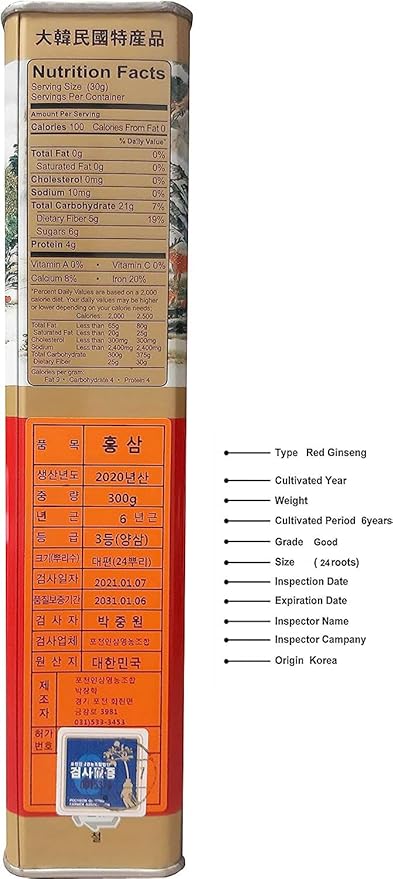 大韓民國特産品
Nutrition Facts
Serving Size (30g)
Servings Per Container
Amount Per Serving
Calories 100 Calories From Fat 0
% Daily Value*
Total Fat 0g 0%
Saturated Fat 0g 0%
Cholesterol 0mg 0%
Sodium 10mg 0%
Total Carbohydrate 21g 7%
Dietary Fiber 5g 19%
Sugars 6g
Protein 4g
Vitamin A 0% • Vitamin C 0%
Calcium 8% • Iron 20%
*Percent Daily Values are based on a 2,000
calorie diet. Your daily values may be higher
or lower depending on your calorie needs:
Calories: 2,000 2,500
Total Fat Less than 65g 80g
Saturated Fat Less than 20g 25g
Cholesterol Less than 300mg 300mg
Sodium Less than 2,400mg 2,400mg
Total Carbohydrate 300g 375g
Dietary Fiber 25g 30g
Calories per gram:
Fat 9 • Carbohydrate 4 • Protein 4
품 목 홍 삼
생산년도 2020년산
중 량 300g
년 근 6 년근
등 급 3등(양삼)
크기(뿌리수) 대편(24뿌리)
검사일자 2021.01.07
품질보증기간 2031.01.06
검 사 자 박 중 원
검사업체 포천인삼영농조합
원 산 지 대한민국
제조자 포천인삼영농조합
박창학
경기 포천 화현면
금강로 3981
031)533-3453
허가번호
검사필증
Type Red Ginseng
Cultivated Year
Weight
Cultivated Period 6years
Grade Good
Size (24roots)
Inspection Date
Expiration Date
Inspector Name
Inspector Campany
Origin Korea